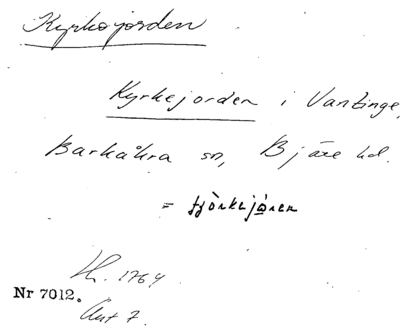 Kyrkojorden
Kyrkejorden i Vantinge,
Barkåkra sn, Bjäre hd.
= tjörkejoren
H. 1764
Nr 7012.
Ant 7.